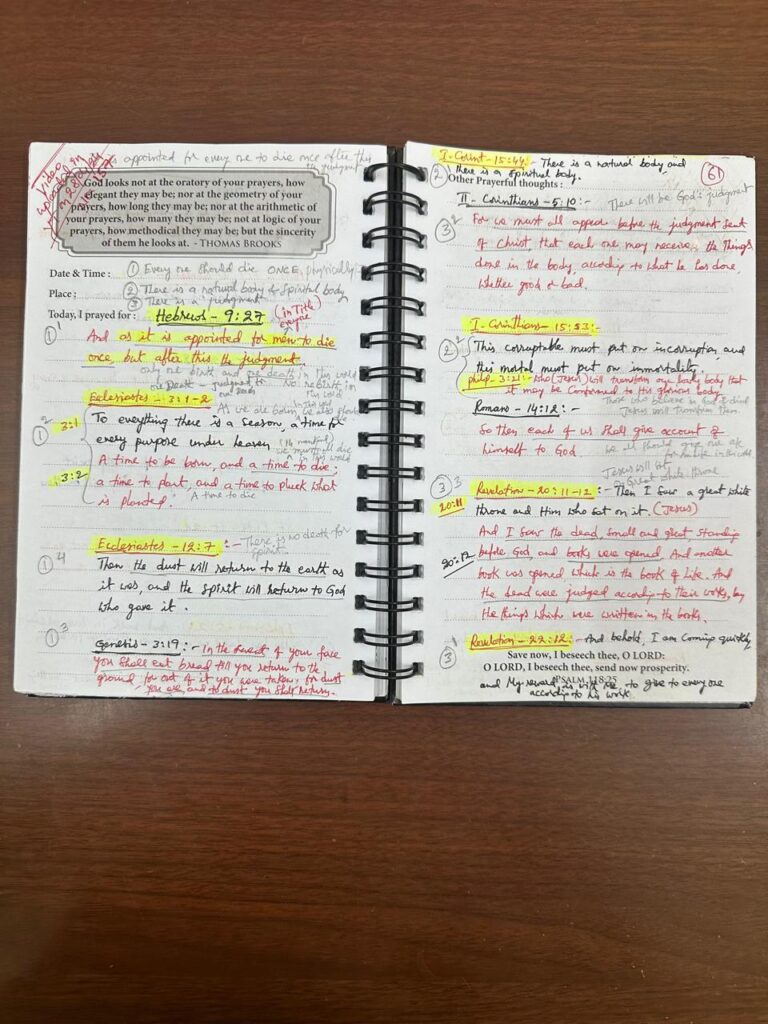 Video uploaded in
is appointed for every one to die once after this
the judgment
God looks not at the oratory of your prayers, how
elegant they may be; nor at the geometry of your
prayers, how long they may be; nor at the arithmetic of
your prayers, how many they may be; not at logic of your
prayers, how methodical they may be; but the sincerity
of them he looks at. - THOMAS BROOKS
Date & Time : ① Every one should die ONCE, physically
Place : ② There is a natural body & Spiritual body
③ There is a judgment
Today, I prayed for : Hebrews - 9:27 (in Title)
everyone
①1 And as it is appointed for men to die
once, but after this the judgment.
only one birth and one death in this world
one Death - judgment to
our deeds
No rebirth in
this world
Ecclesiastes - 3:1-2
As we are born, we also should
①2 3:1 To everything there is a season, a time for
every purpose under heaven
we must all die
in this world
A time to be born, and a time to die;
3:2 a time to plant, and a time to pluck what
is planted. A time to die
Ecclesiastes - 12:7 :- There is no death for
spirit
①4 Then the dust will return to the earth as
it was, and the spirit will return to God
who gave it.
①3 Genesis - 3:19 :- In the sweat of your face
you shall eat bread till you return to the
ground, for out of it you were taken; for dust
you are, and to dust you shall return.
I - Corint - 15:44 :- There is a natural body and
② there is a spiritual body.
61
Other Prayerful thoughts :
II - Corinthians - 5:10 :- There will be God's judgment
③2 For we must all appear before the judgment seat
of Christ, that each one may receive the things
done in the body, according to what he has done,
whether good or bad.
I - Corinthians - 15:53 :-
②2 This corruptable must put on incorruption and
this mortal must put on immortality.
philip - 3:21 :- who (Jesus) will transform our lowly body that
it may be conformed to His glorious body
Those who believe in God & died
Jesus will transform them.
Romans - 14:12 :-
So then each of us shall give account of
himself to God
we all should give
Jesus will sit
on Great white throne
③3 Revelation - 20:11-12 :- Then I saw a great white
20:11 throne and Him who sat on it. (Jesus)
And I saw the dead, small and great standing
20:12 before God, and books were opened. And another
book was opened which is the book of Life. And
the dead were judged according to their works, by
the things which were written in the books.
③1 Revelation - 22:12 :- And behold, I am coming quickly
Save now, I beseech thee, O LORD:
O LORD, I beseech thee, send now prosperity.
PSALM 118:25
and My reward is with Me, to give to every one
according to his work.